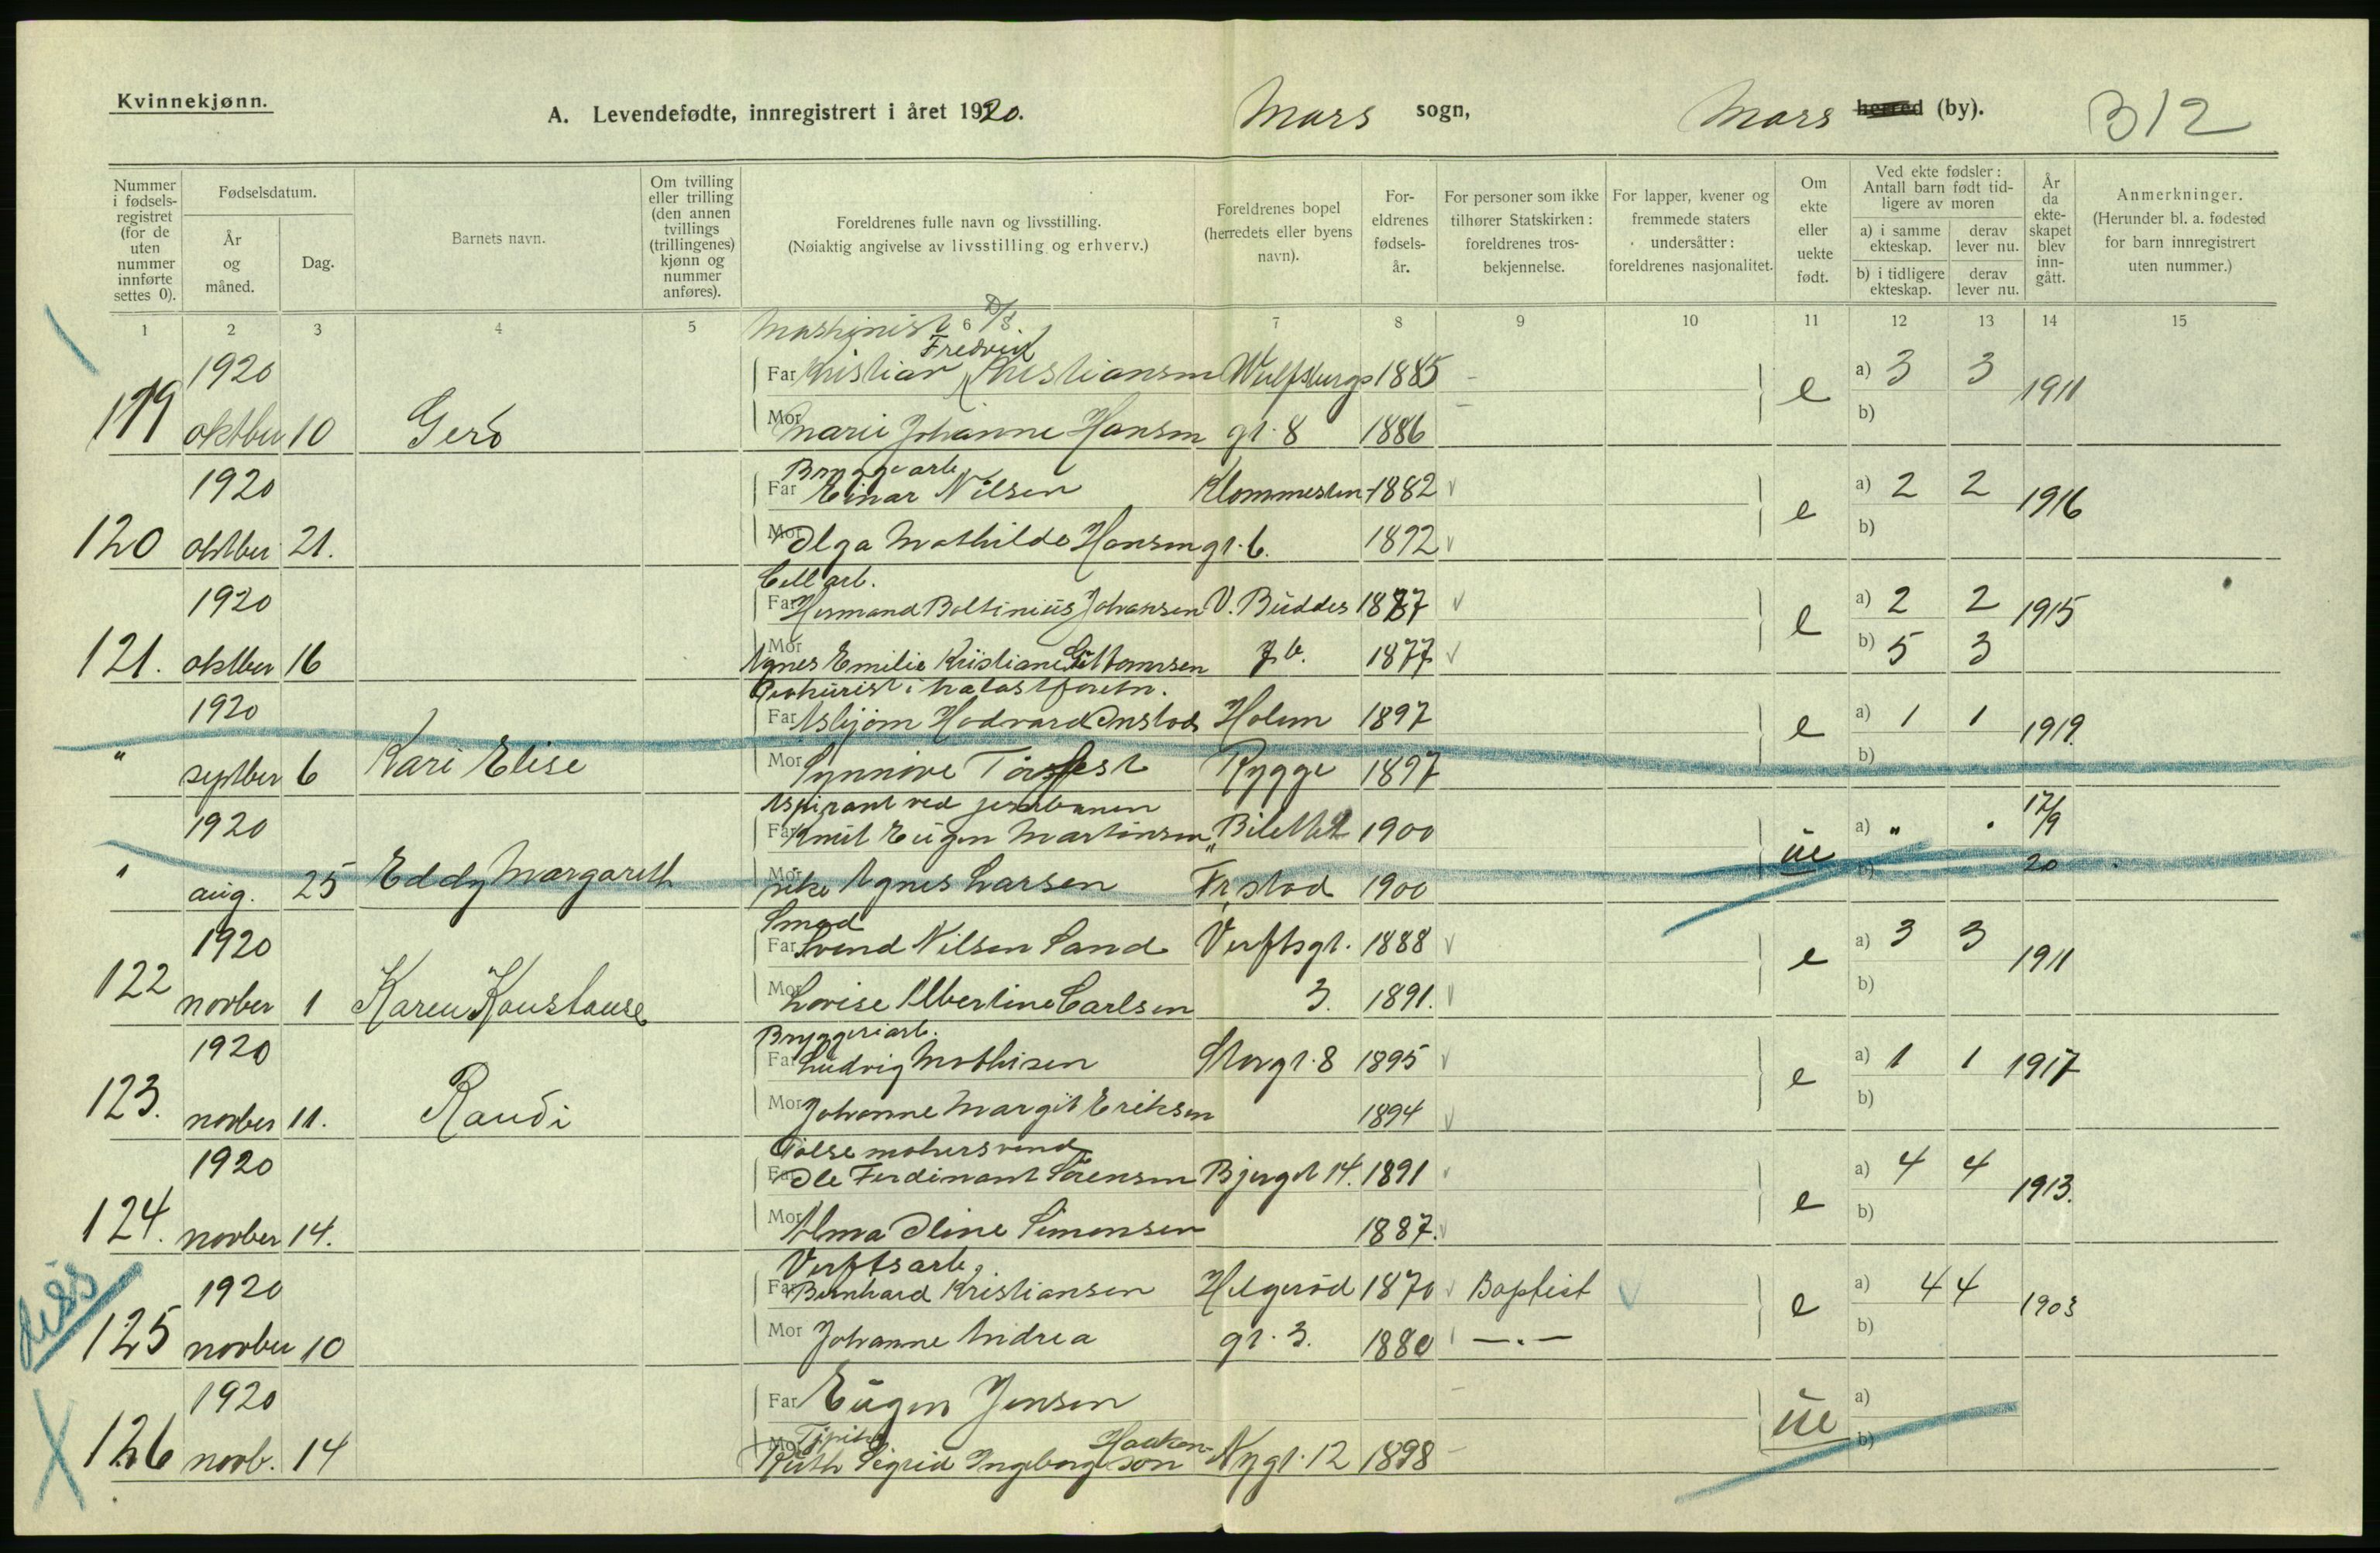 Kvinnekjønn.
A. Levendefødte, innregistrert i året 1920.
Moss sogn,
Moss herred (by).
B12
Nummer i fødsels-registret (for de uten nummer innførte settes 0).
Fødselsdatum.
År og måned.
Dag.
Barnets navn.
Om tvilling eller trilling (den annen tvillings (trillingenes) kjønn og nummer anføres).
Foreldrenes fulle navn og livsstilling.
(Nøiaktig angivelse av livsstilling og erhverv.)
Foreldrenes bopel (herredets eller byens navn).
For-eldrenes fødsels-år.
For personer som ikke tilhører Statskirken: foreldrenes tros-bekjennelse.
For lapper, kvener og fremmede staters undersåtter: foreldrenes nasjonalitet.
Om ekte eller uekte født.
Ved ekte fødsler: Antall barn født tid-ligere av moren
a) i samme ekteskap.
derav lever nu.
b) i tidligere ekteskap.
derav lever nu.
År da ekte-skapet blev inn-gått.
Anmerkninger.
(Herunder bl. a. fødested for barn innregistrert uten nummer.)
1 2 3 4 5 6 7 8 9 10 11 12 13 14 15
Maskinist D/S.
Fredrik
1920 Far Kristian Kristiansen Wulfsbergs 1885 - e a) 3 3 1911
119 oktber 10 Gerd Mor Marie Johanne Hansen gt. 8 1886 - b)
Bryggearb.
1920 Far Einar Nilsen Klommesten- 1882 e a) 2 2 1916
120 oktber 21. Mor Olga Mathilde Hansen gt. 6. 1892 b)
Cell arb.
1920 Far Hermand Boltinius Johansen V. Buddes 1887 e a) 2 2 1915
121. oktber 16 Mor Agnes Emilie Kristiane Guttormsen 1877 b) 5 3
1920 Far Asbjørn Hodvard Holum 1897 e a) 1 1 1919.
" septber 6 Kari Elise Mor Synnøve Rygge 1897 b)
Aspirant ved jernbanen
1920 Far Knut Eugen Martinsen 1900 ue a) " 17/9
" aug. 25 Eddy Margareth Mor Agnes Larsen Fr.stad 1900 b) 20
Smed
1920 Far Svend Nilsen Sand Verftsgt. 1888 e a) 3 3 1911
122 novber 1 Karen Konstanse Mor Lovise Albertine Carlsen 3. 1891. b)
Bryggeriarb.
1920 Far Ludvig Mathisen Storgt. 8 1895 e a) 1 1 1917
123. novber 11. Randi Mor Johanne Margit Eriksen 1894 b)
Pølsemakersvend
1920 Far Ole Ferdinant Sørensen Bjergt 14. 1891 e a) 4 4 1913.
124. novber 14. Mor Alma Oline Simonsen 1887. b)
Verftsarb.
1920 Far Bernhard Kristiansen Helgerød 1870 Baptist e a) 4 4 1903
diss
125 novber 10 Mor Johanne Andrea gt. 3. 1880 —.— b)
1920 Far Eugen Jensen - ue a)
X 126 novb. 14 Mor Ruth Sigrid Ingeborg Haakonson Nygt. 12 1898 - b)